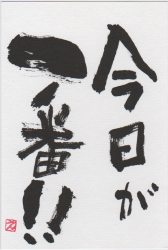 今日が
一番!!